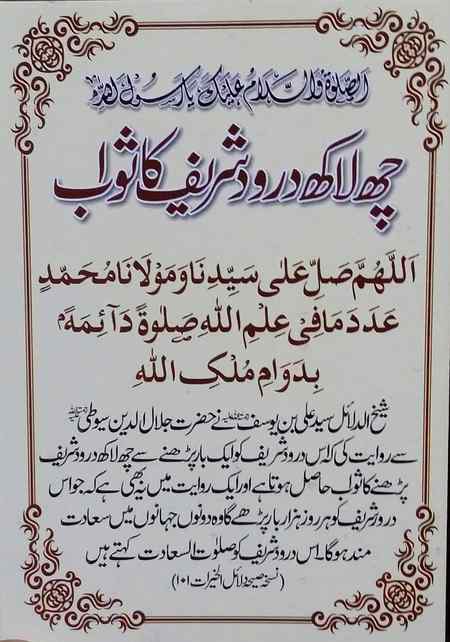 الصلوٰۃ والسلام علیک یارسول اللہ
چھ لاکھ درود شریف کا ثواب
اَللّٰهُمَّ صَلِّ عَلٰى سَيِّدِنَا وَمَوْلَانَا مُحَمَّدٍ
عَدَدَ مَا فِيْ عِلْمِ اللّٰهِ صَلٰوةً دَآئِمَةً ۢ
بِدَوَامِ مُلْكِ اللّٰهِ
شیخ الدلائل سید علی بن یوسف نے حضرت جلال الدین سیوطی
سے روایت کی کہ اس درود شریف کو ایک بار پڑھنے سے چھ لاکھ درود شریف
پڑھنے کا ثواب حاصل ہوتا ہے اور ایک روایت میں یہ بھی ہے کہ جو اس
درود شریف کو ہر روز ہزار بار پڑھے گا وہ دونوں جہانوں میں سعادت
مند ہوگا۔ اس درود شریف کو صلوٰت السعادت کہتے ہیں
(نسخہ صیحہ دلائل الخیرات ۱۰۱)